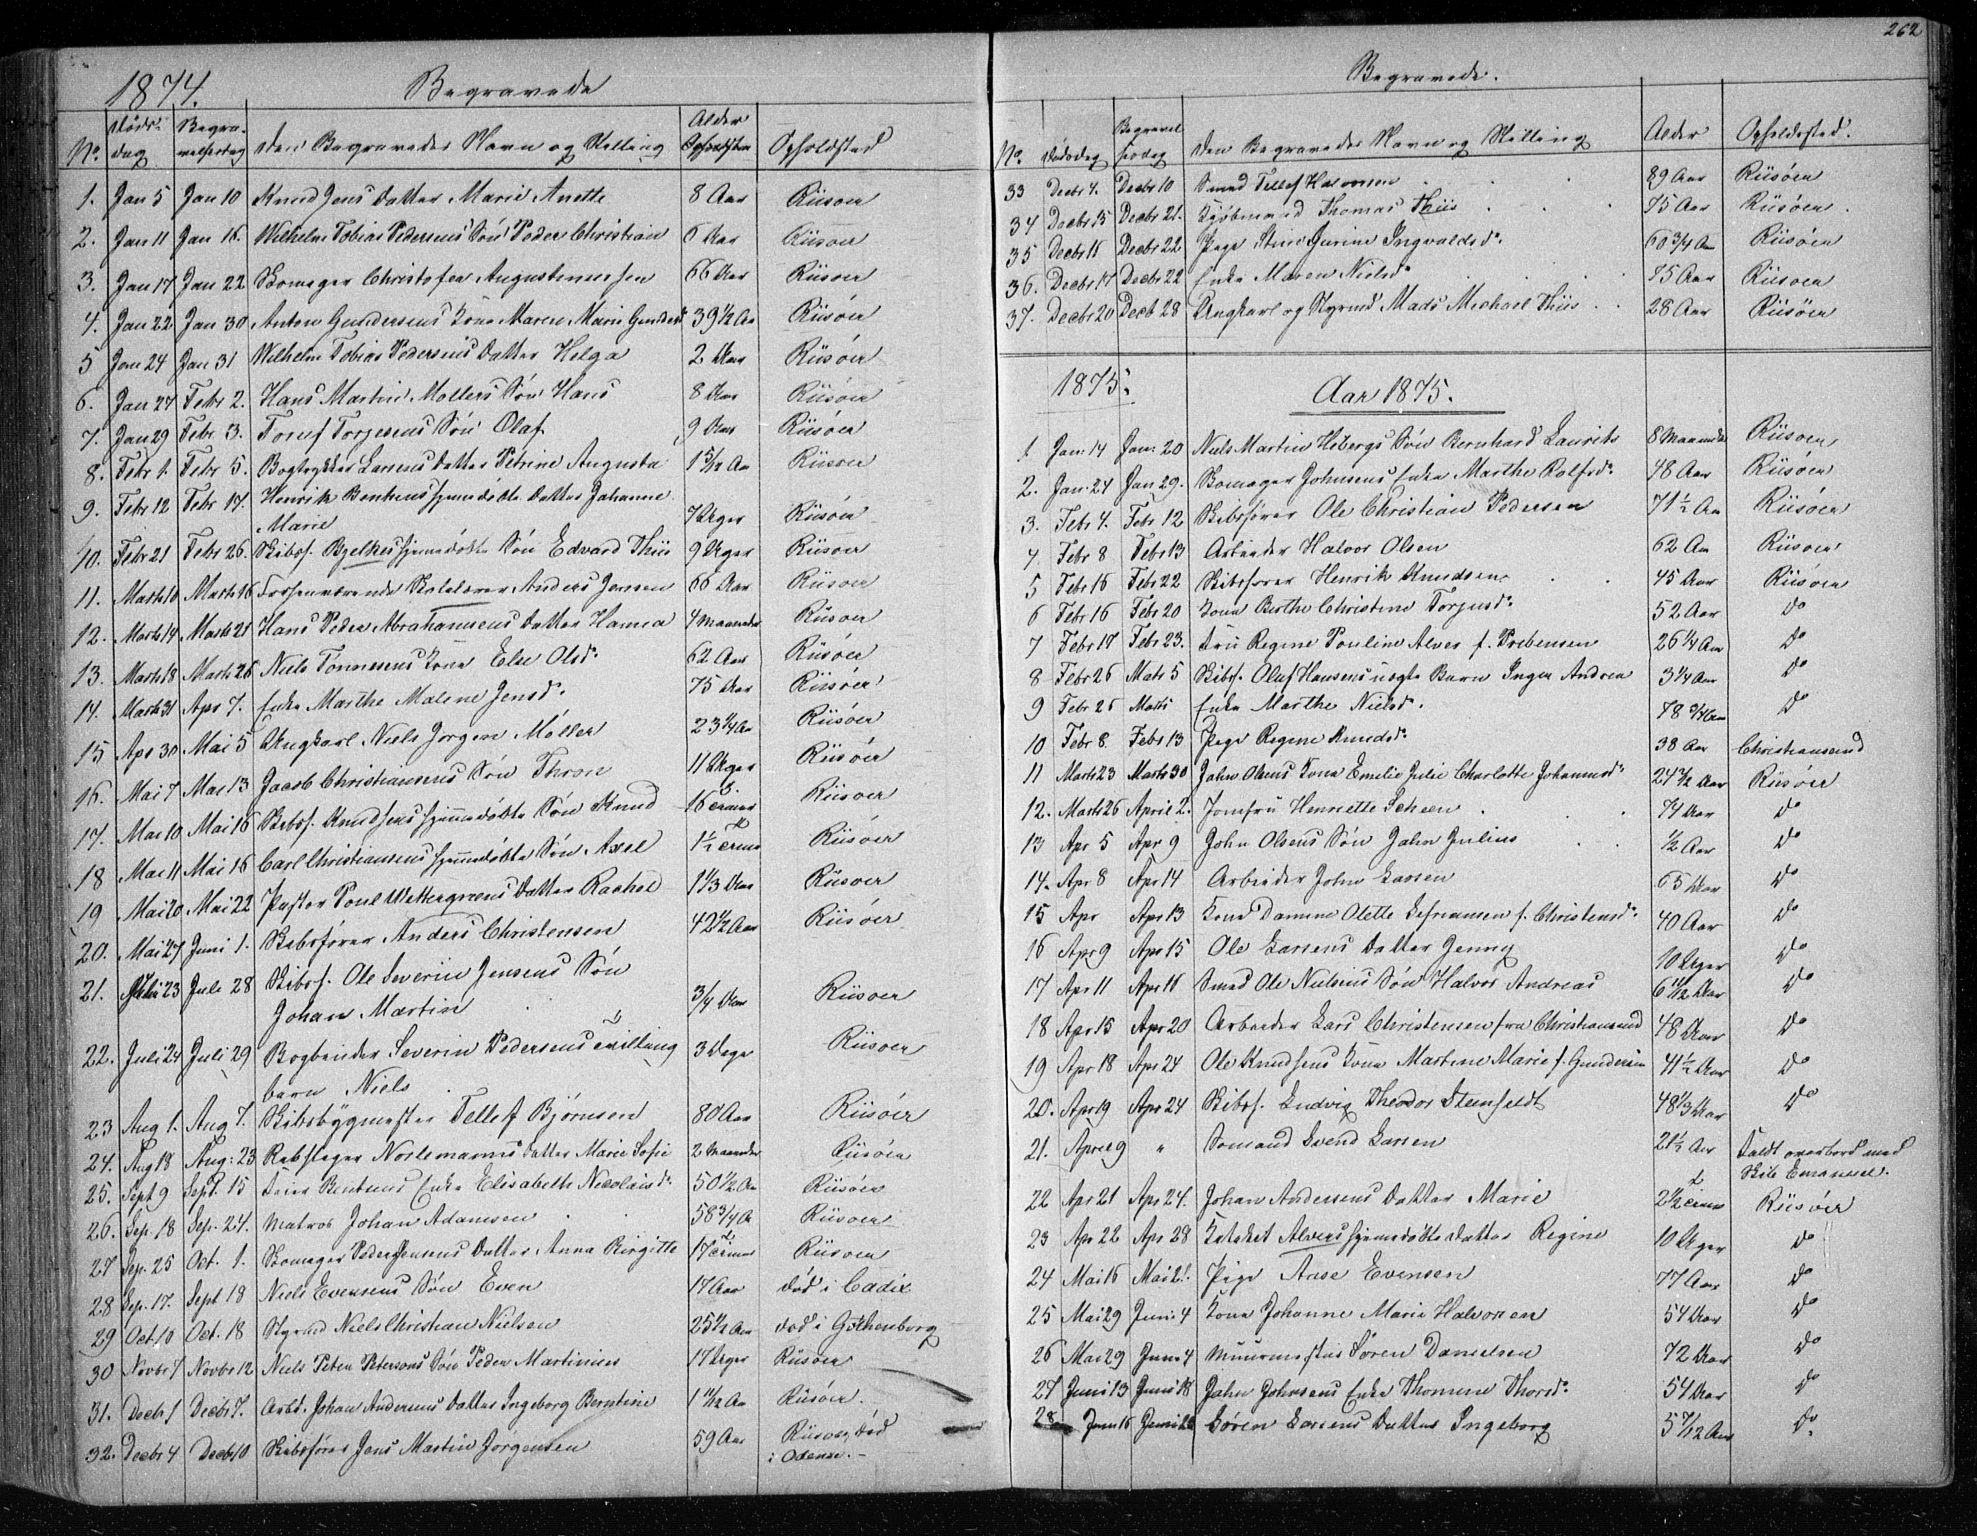 1874.
Begravede
No. Døds-dag Begra-velsesdag Den Begravedes Navn og Stilling Alder Opholdssted
1. Jan 5 Jan 10 Knud Jens Datter Marie Anette 8 Aar Riisøer
2. Jan 11 Jan 16. Wilhelm Tobias Pedersens Søn Peder Christian 6 Aar Riisøer
3. Jan 17 Jan 22 Skomager Christofer Augustinussen 66 Aar Riisøer
4. Jan 22 Jan 30 Anton Gundersens Kone Maren Marie Gundersd 39 1/2 Aar Riisøer
5 Jan 24 Jan 31 Wilhelm Tobias Pedersens Datter Helga 2 Aar Riisøer
6. Jan 27 Febr 2. Hans Martin Møllers Søn Hans 8 Aar Riisøer
7. Jan 29 Febr 3. Josef Torjesens Søn Olaf 9 Aar Riisøer
8. Febr 1. Febr 5. Bogtrykker Larsens Datter Petrine Augusta 1 5/12 Aar Riisøer
9. Febr 12 Febr 17. Henrik Bentsens hjemmedøbte Datter Johanne
Marie 7 Uger Riisøer
10. Febr 21 Febr 26. Skibsf. hjemmedøbte Søn Edvard Thiis 9 Uger Riisøer
11. Marts 10 Marts 16 Forhenværende Anders Jensen 66 Aar Riisøer
12. Marts 14 Marts 21 Hans Peder Abrahamsens Datter Hanna 4 Maaneder Riisøer
13. Marts 18 Marts 26 Niels Tønnesens Kone Else Olsd. 62 Aar Riisøer
14. Marts 31 Apr 7. Enke Marthe Malene Jensd. 75 Aar Riisøer
15 Apr 30 Mai 5 Ungkarl Niels Jørgen Møller 23 1/4 Aar Riisøer
16. Mai 7 Mai 13 Jacob Christiansens Søn Thron 11 Uger Riisøer
17. Mai 10 Mai 16 Skibsf. Knudsens hjemmedøbte Søn Knud 16 Riisøer
18 Mai 11 Mai 16 Carl Christiansens hjemmedøbte Søn Axel 1 1/2 Riisøer
19 Mai 20 Mai 22 Pastor Poul Wettergreens Datter Rachel 1 1/3 Aar Riisøer
20. Mai 27 Juni 1. Skibsfører Anders Christensen 42 1/2 Aar Riisøer
21. Juli 23 Juli 28 Skibsf. Ole Severin Jensens Søn
Johan Martin 3/4 Aar Riisøer
22. Juli 24 Juli 29 Bogbinder Severin Pedersens Tvilling
barn Niels 3 Dage Riisøer
23 Aug 1. Aug 7. Skibsbygmester Tellef Bjørnsen 80 Aar Riisøer
24. Aug 18 Aug: 23 Rebslager Datter Marie Sofie 2 Maaneder Riisøer
25. Sept 9 Sept. 15 Bentsens Enke Elisabeth Nicolaisd. 50 1/2 Aar Riisøer
26. Sep. 18 Sep. 24. Matros Johan Adamsen 58 3/4 A Riisøer
27 Sep. 25 Oct. 1. Skomager Peder Jensens Datter Anna Birgitte 17 Riisøer
28 Sep. 17. Sept 18 Niels Evensens Søn Even 17 Aar død i Cadix
29 Oct. 10 Oct. 18 Styrmd Niels Christian Nielsen 25 1/2 Aar død i Gøthenborg
30 Novbr 7 Novbr 12 Niels Peter Petersens Søn Peder Martinius 17 Uger Riisøer
31. Decbr 1 Decbr 7. Arbd. Johan Andersens Datter Ingeborg Berntine 1 11/12 Aar Riisøer.
32. Decbr 4 Decbr 10 Skibsfører Jens Martin Jørgensen 59 Aar Riisøer, død
i Odense.
262
Begravede.
No. Dødsdag Begravelsesdag Den Begravedes Navn og Stilling Alder Opholdssted.
33 Decbr 4. Decbr 10 Smed Tellef Halvorsen 89 Aar Riisøer
34 Decbr 15 Decbr 21. Kjøbmand Thomas Thiis 75 Aar Riisøer
35 Decbr 16 Decbr 22 Pige Stine Gurine Ingvaldsd. 60 3/4 Aar Riisøer
36. Decbr 17 Decbr 22 Enke Maren Nielsd. 75 Aar Riisøer
37. Decbr 20 Decb 28 Ungkarl og Styrmd Mads Michael Thiis 28 Aar Riisøer
1875.
Aar 1875.
1. Jan: 14 Jan: 20 Niels Martin Hobergs Søn Bernhard Laurits 8 Maaneder Riisøer
2. Jan: 24 Jan 29. Skomager Johnsens Enke Marthe Rolfsd. 48 Aar Riisøer
3. Febr 4. Febr 12 Skibsfører Ole Christian Pedersen 71 1/2 Aar Riisøer
4 Febr 8 Febr 13 Arbeider Halvor Olsen 62 Aar Riisøer
5 Febr 16 Febr 22 Skibsfører Henrik Knudsen 45 Aar Riisøer
6 Febr 16 Febr 20 Kone Berthe Christine Torjusd. 52 Aar Do
7 Febr 17 Febr 23. Fru Regine Pouline Alver f. Prebensen 26 1/4 Aar Do
8 Febr 26 Marts 5 Skibsf. Olaf Hansens uægte Barn Inger Andrea 3 1/4 Aar Do
9 Febr 26 Marts Enke Marthe Nielsd. 78 3/4 Aar Do
10 Febr 8. Febr 13 Pige Regine Knudsd. 38 Aar Christiansund
11 Marts 23 Marts 30 John Olsens Kone Emelie Julie Charlotte Johannesd. 24 Aar Riisøer
12. Marts 26 April 2. Jomfru Henriette Scheen 74 Aar Do
13 Apr 5 Apr 9 John Olsens Søn John Julius 1/2 Aar Do
14. Apr 8 Apr 14 Arbeider John Larsen 65 Aar Do
15 Apr Apr 13 Kone Olette f. Christensd. 40 Aar Do
16 Apr 9 Apr 15 Ole Larsens Datter Jenny 10 Uger Do
17 Apr 11 Apr 16 Smed Ole Nielsens Søn Halvor Andreas 6 11/12 Aar Do
18 Apr 15 Apr 20 Arbeider Lars Christensen fra Christiansund 48 Aar Do
19 Apr 18 Apr 24 Ole Knudsens Kone Martine Marie f. Gundersen 41 1/2 Aar Do
20. Apr 19 Apr 24 Skibsf. Ludvig Theodor Steinfeldt 48 1/3 Aar Do
21. April 9 " Sømand Svend Larsen 21 1/2 Aar Faldt overbord med
Skib Emanuel.
22 Apr 21 Apr 24. Johan Andersens Datter Marie 2 1/2 Riisøer
23 Apr 22 Apr 28 Kateket Alvers hjemmedøbte Datter Regine 10 Uger Do
24 Mai 16 Mai 21. Pige Anse Evensen 77 Aar Do
25 Mai 29 Juni 4 Kone Johanne Marie Halvorsen 54 Aar Do
26 Mai 29 Juni 4 Muurmester Søren Danielsen 72 Aar Do
27 Juni 13 Juni 18 John Johnsens Enke Thomine Thorsd. 54 Aar Do
28 Juni 16 Juni Søren Larsens Datter Ingeborg 5 7/12 Aar Do